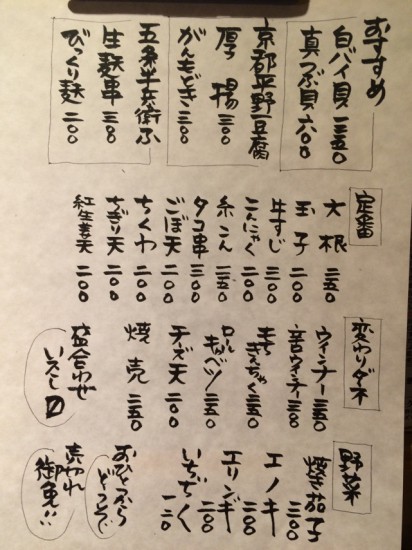 おすすめ
白バイ貝
真つぶ貝 六〇〇
京都平野豆腐
厚揚 三〇〇
がんもどき 三〇〇
五条半兵衛ふ
生麩串 三〇〇
びっくり麩 二〇〇
定番
大根 二五〇
玉子 二〇〇
牛すじ
こんにゃく 二〇〇
糸こん
タコ串 三〇〇
ごぼ天 二〇〇
ちくわ 二〇〇
ちぎり天 二〇〇
紅生姜天 二〇〇
変わりダネ
ウィンナー 二五〇
辛ウィンナー
もちきんちゃく 二五〇
ロールキャベツ 二五〇
チーズ天 二〇〇
焼売 二五〇
盛合わせ
いたし〼
野菜
焼き茄子 三〇〇
エノキ 二〇〇
エリンギ 二〇〇
いちぢく
おひとつから
どうぞ
売切れ
御免!!